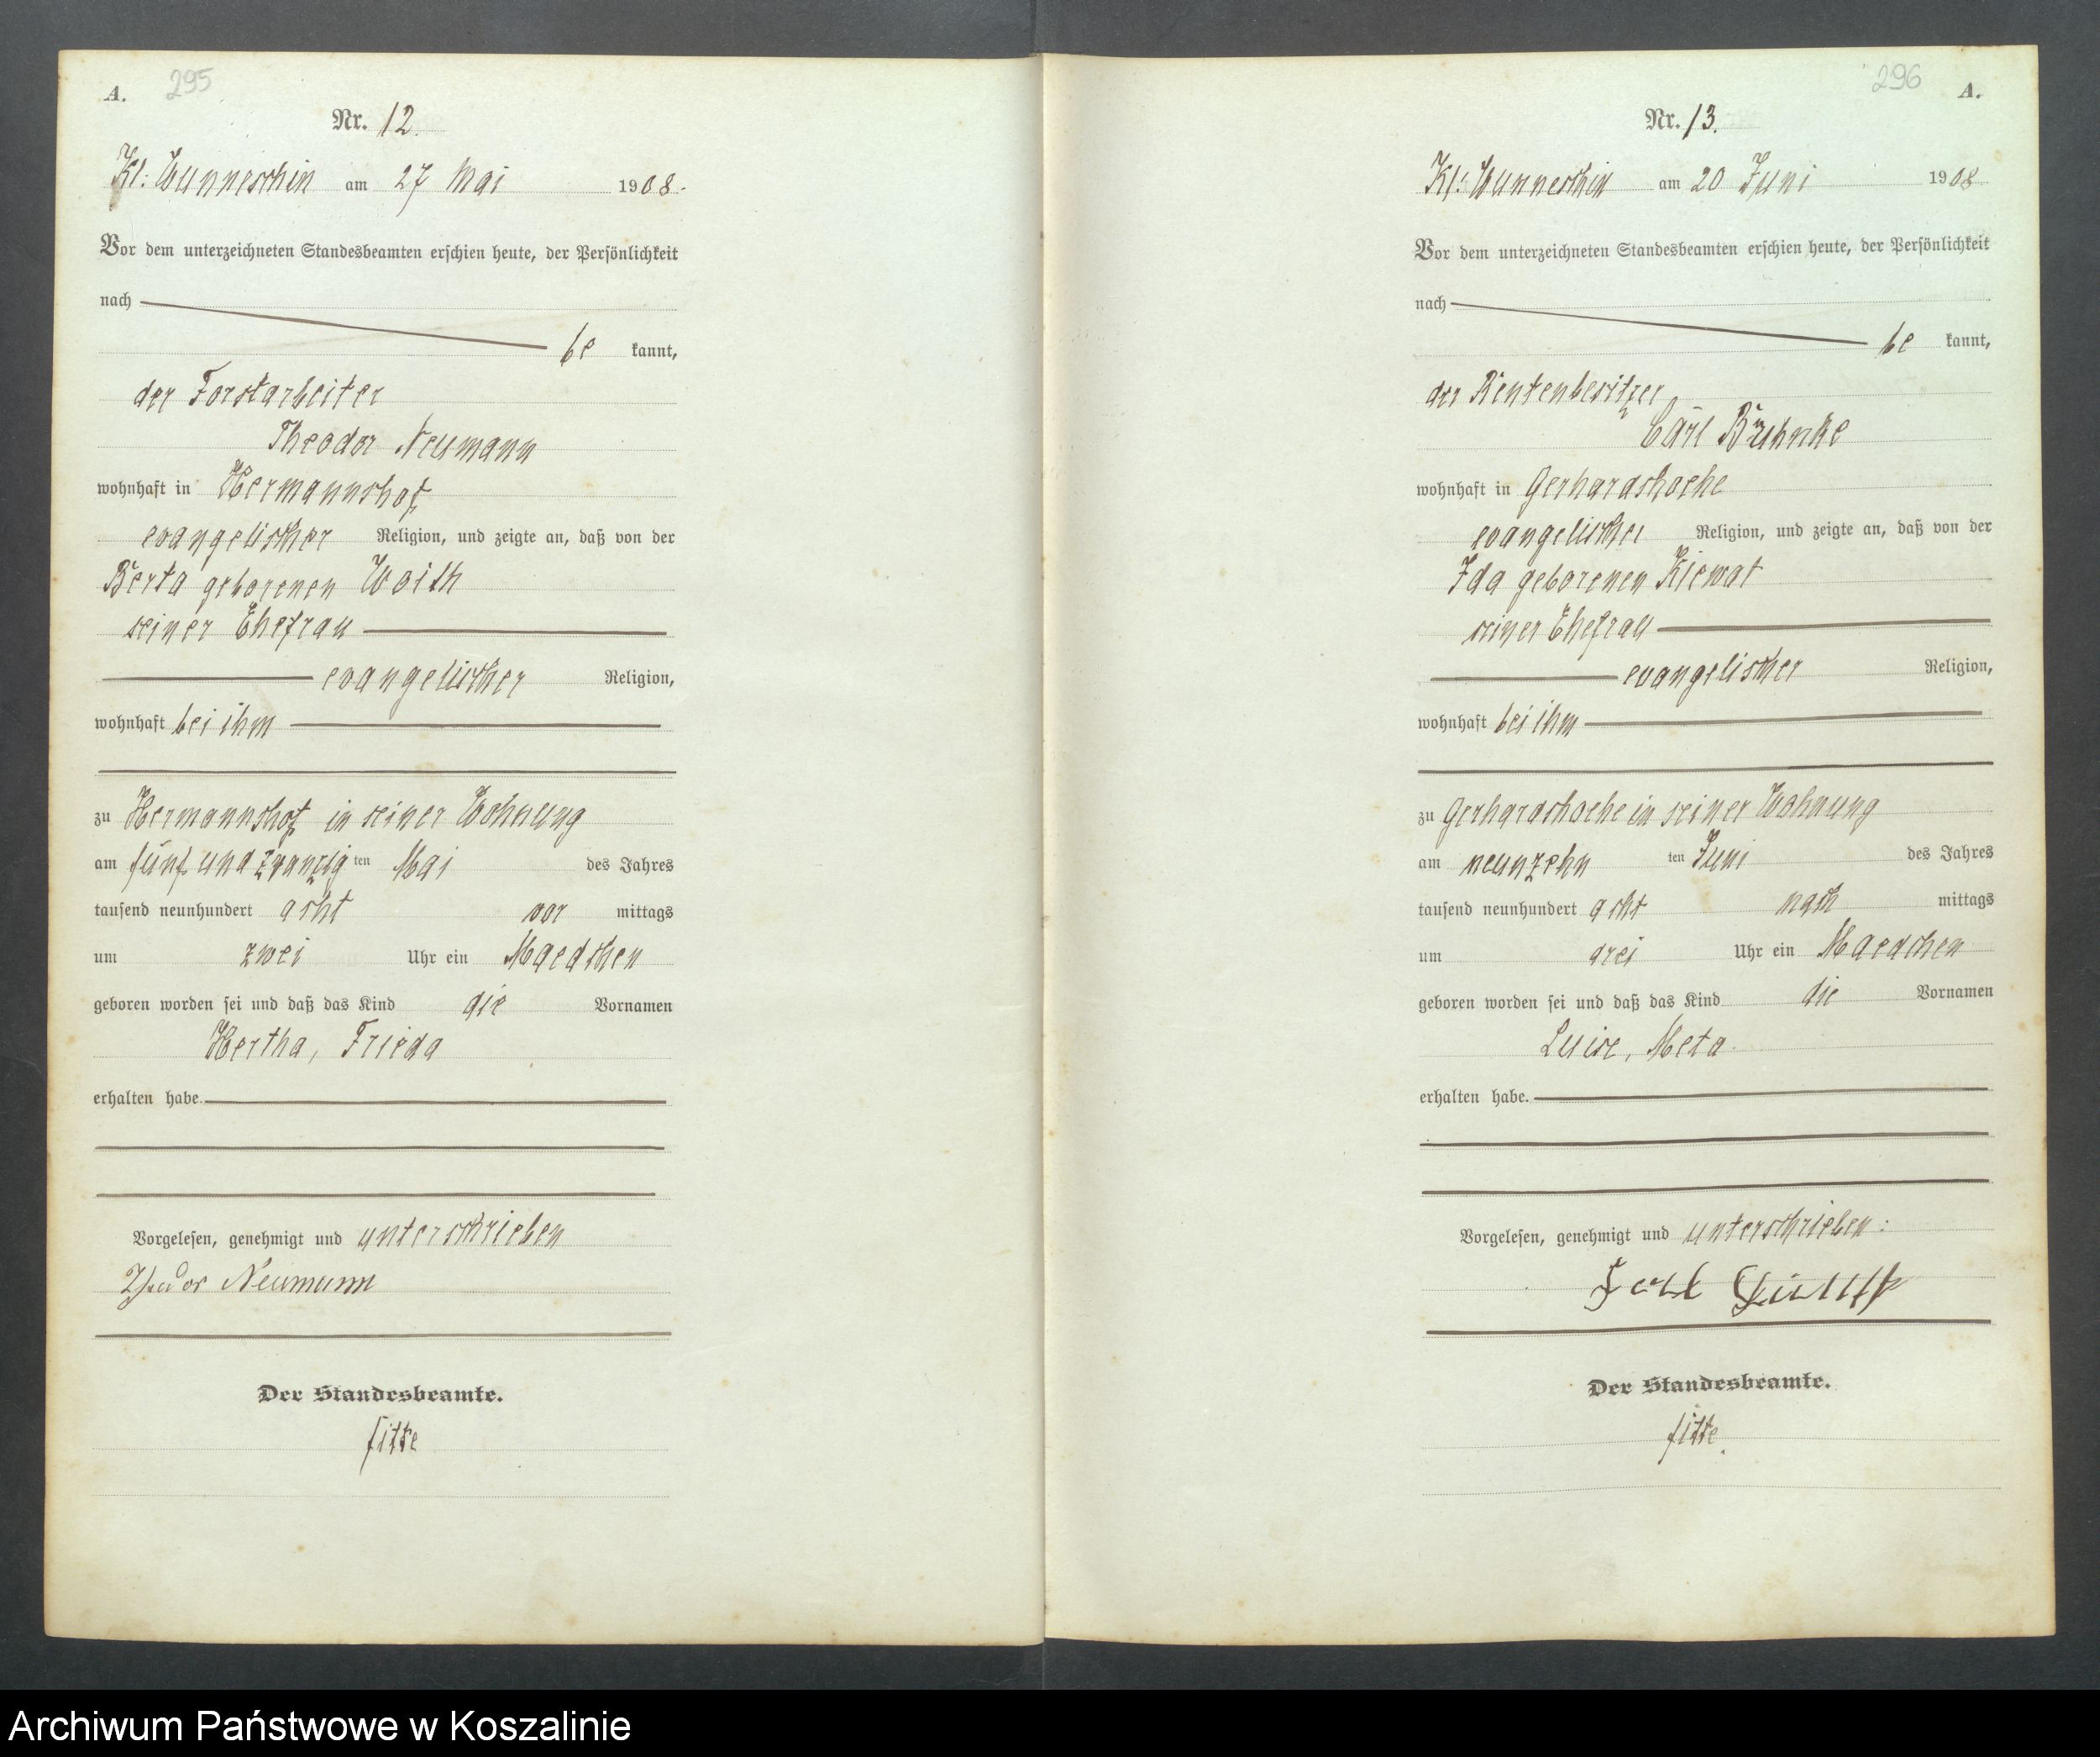 A. 295
Nr. 12.
Kl: Wunneschin am 27 Mai 1908.
Vor dem unterzeichneten Standesbeamten erschien heute, der Persönlichkeit
nach
be kannt,
der Forstarbeiter
Theodor Neumann
wohnhaft in Hermannshof
evangelischer Religion, und zeigte an, daß von der
Berta geborenen Woith
seiner Ehefrau
evangelischer Religion,
wohnhaft bei ihm
zu Hermannshof in seiner Wohnung
am fünf und zwanzig ten Mai des Jahres
tausend neunhundert acht vor mittags
um zwei Uhr ein Maedchen
geboren worden sei und daß das Kind die Vornamen
Hertha, Frieda
erhalten habe.
Vorgelesen, genehmigt und unterschrieben
Theodor Neumann
Der Standesbeamte.
Fitte
296 A.
Nr. 13.
Kl: Wunneschin am 20 Juni 1908
Vor dem unterzeichneten Standesbeamten erschien heute, der Persönlichkeit
nach
be kannt,
der Rentenbesitzer
Carl
wohnhaft in Gerhardshoehe
evangelischer Religion, und zeigte an, daß von der
Ida geborenen Kiewat
seiner Ehefrau
evangelischer Religion,
wohnhaft bei ihm
zu Gerhardshoehe in seiner Wohnung
am neunzehn ten Juni des Jahres
tausend neunhundert acht nach mittags
um drei Uhr ein Maedchen
geboren worden sei und daß das Kind die Vornamen
Luise, Meta
erhalten habe.
Vorgelesen, genehmigt und unterschrieben:
Der Standesbeamte.
Fitte.
Archiwum Państwowe w Koszalinie